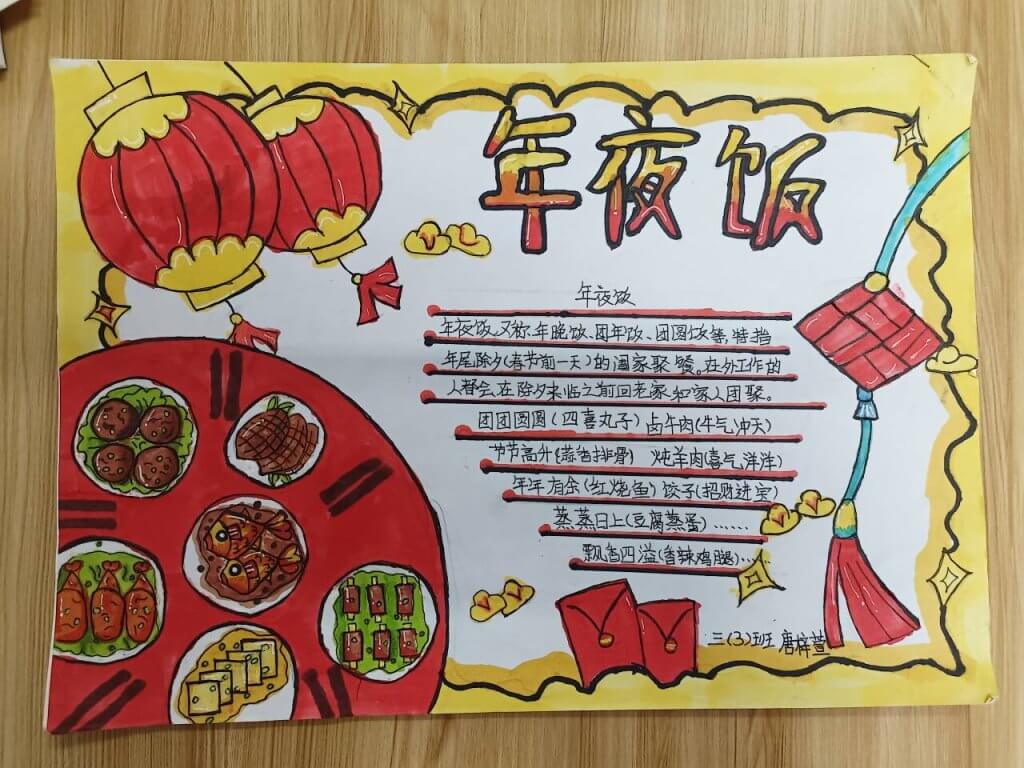 年夜饭
年夜饭
年夜饭、又称年晚饭、团年饭、团圆饭等,特指
年尾除夕(春节前一天)的阖家聚餐。在外工作的
人都会在除夕来临之前回老家和家人团聚。
团团圆圆(四喜丸子) 卤牛肉(牛气冲天)
节节高升(蒜香排骨) 炖羊肉(喜气洋洋)
年年有余(红烧鱼) 饺子(招财进宝)
蒸蒸日上(豆腐蒸蛋)……
飘香四溢(香辣鸡腿)……
三(3)班 唐梓萱